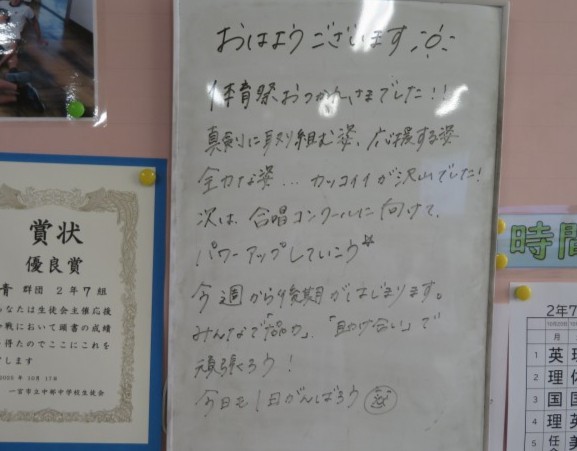 おはようございます
体育祭おつかれさまでした!!
真剣に取り組む姿、応援する姿
全力な姿…カッコイイが沢山でした!
次は、合唱コンクールに向けて、
パワーアップしていこう☆
今週から後期がはじまります。
みんなで「協力」、「助け合い」で
頑張ろう!
今日も1日がんばろう
賞状
優良賞
青 群団 2年7組
なたは生徒会主催応援
戦において頭書の成績
得たのでここにこれを
します
10月 17日
一宮市立中部中学校生徒会
時間
2年7
月
1 英
2 理
3 国
4 理 英
5 任